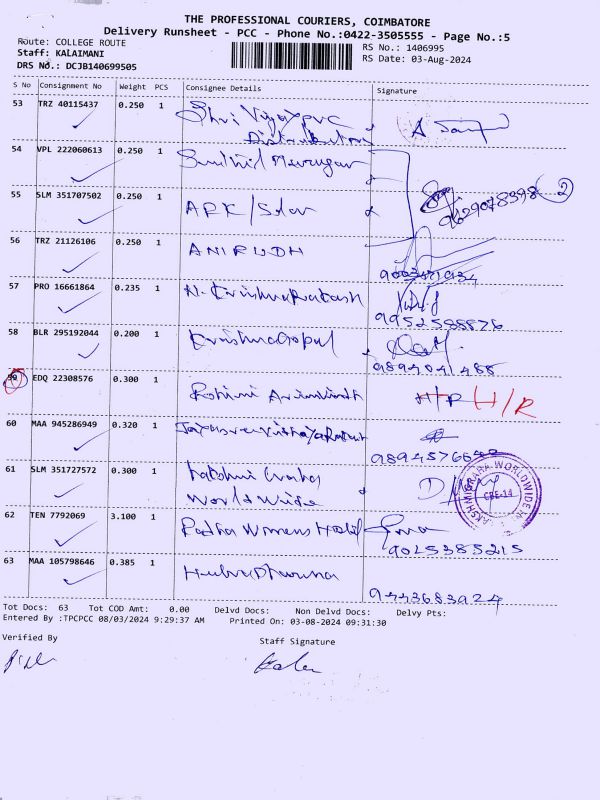 THE PROFESSIONAL COURIERS, COIMBATORE
Delivery Runsheet - PCC - Phone No.:0422-3505555 - Page No.:5
Route: COLLEGE ROUTE
RS No.: 1406995
Staff: KALAIMANI
RS Date: 03-Aug-2024
DRS No.: DCJB140699505
S No Consignment No Weight PCS Consignee Details Signature
53 TRZ 40115437 0.250 1 Shri
54 VPL 222060613 0.250 1
55 SLM 351707502 0.250 1 ARK/Solar
9629078398 2
56 TRZ 21126106 0.250 1 ANIRUDH
57 PRO 16661864 0.235 1 N. KrishnaPrakash
9952588876
58 BLR 295192044 0.200 1 KrishnaGopal
9894041488
59 EDQ 22308576 0.300 1 Rohini H/R H/R
60 MAA 945286949 0.320 1
61 SLM 351727572 0.300 1 Lakshmi
World Wide
62 TEN 7792069 3.100 1 Womens Hostel
9025385215
63 MAA 105798646 0.385 1
9443683924
Tot Docs: 63 Tot COD Amt: 0.00 Delvd Docs: Non Delvd Docs: Delvy Pts:
Entered By :TPCPCC 08/03/2024 9:29:37 AM Printed On: 03-08-2024 09:31:30
Verified By Staff Signature
Kalai